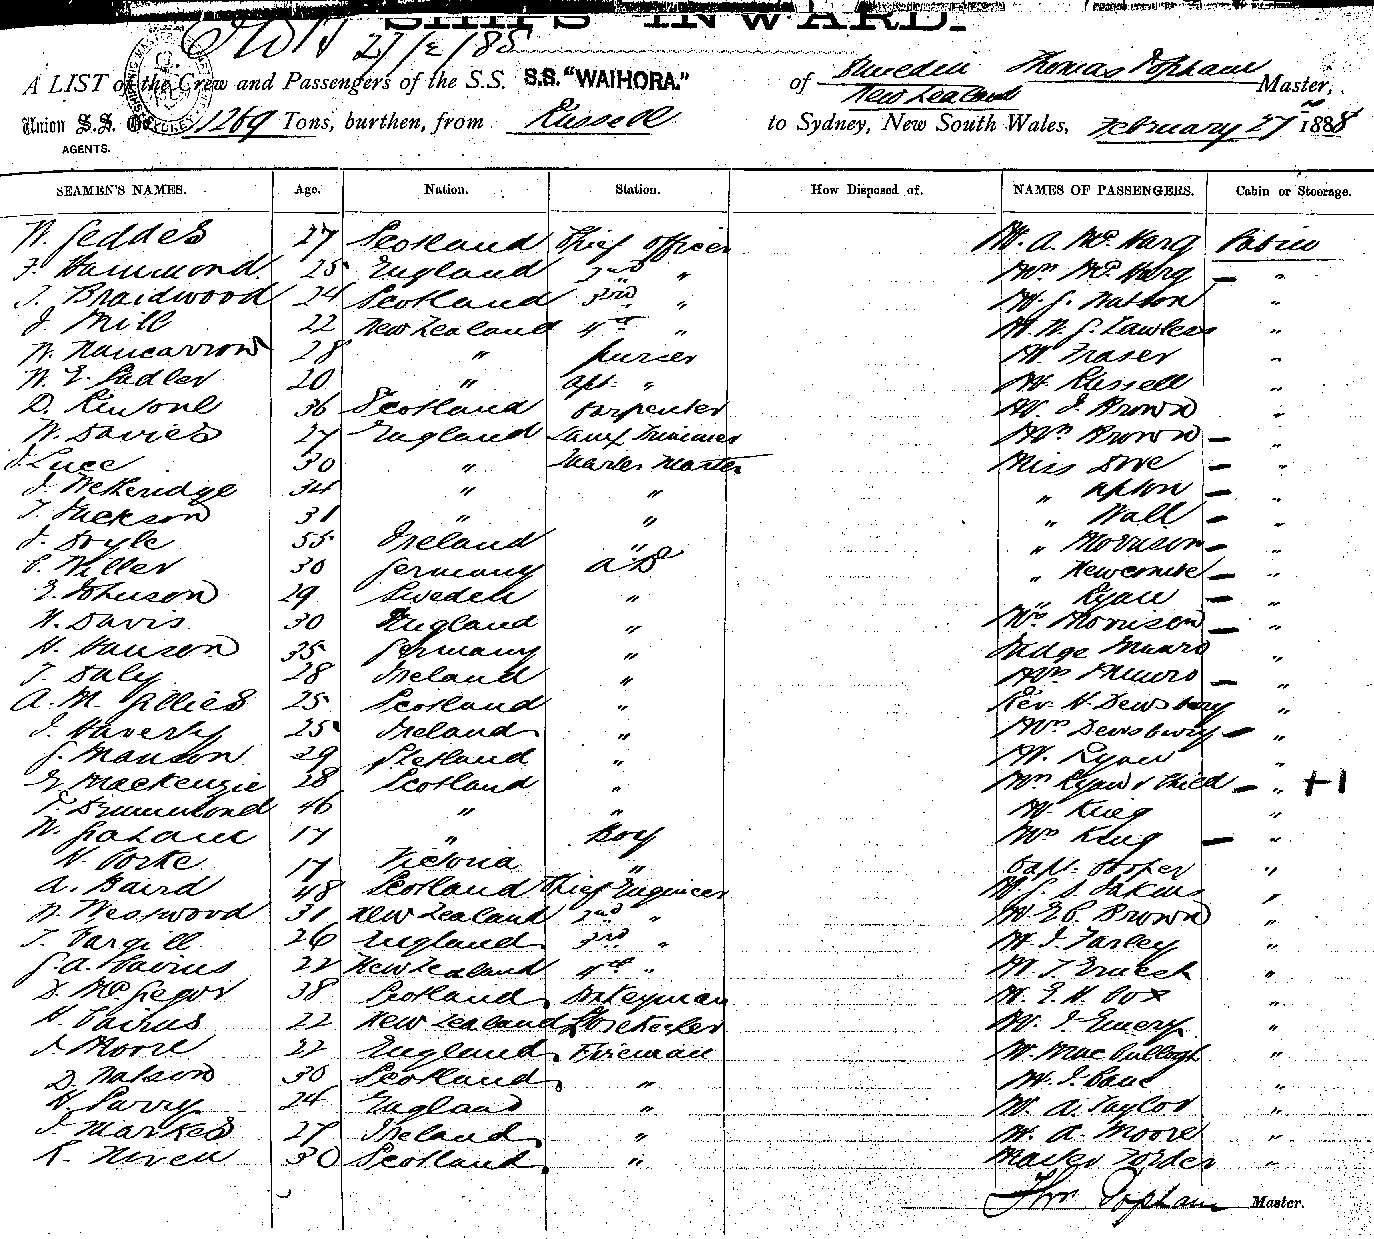 SHIPS INWARD.
27/2/88
A LIST of the Crew and Passengers of the S.S. S.S. "WAIHORA." of Dunedin Thomas Popham Master,
New Zealand
Union S.S. Co 1269 Tons, burthen, from Russell to Sydney, New South Wales, February 27th 1888
AGENTS.
SEAMEN'S NAMES. Age. Nation. Station. How Disposed of. NAMES OF PASSENGERS. Cabin or Steerage.
W. Geddes 27 Scotland Chief Officer Mr. A. McHarg Cabin
F. Hammond 25 England 2nd " Mrs McHarg — "
T. Braidwood 24 Scotland 3rd " Mr. G. Watson "
J. Mill 22 New Zealand 4th " Mr. W. G. Lawless "
W. Nancarrow 28 " purser Mr Fraser "
W. E. Sadler 20 " " Mr. Russell "
D. 36 Scotland Carpenter Mr. J. Brown "
W. Davies 27 England Lamp Trimmer Mrs Brown — "
J. Luce 30 " Quarter Master Miss — "
J. 34 " " " Upton — "
T. Jackson 31 " " " Wall — "
J. Doyle 55 Ireland " " Morrison — "
P. Willer 30 Germany AB " Newcombe — "
E. Johnson 29 Sweden " " Ryan — "
W. Davis 30 England " Mrs Morrison — "
H. Hanson 35 Germany " Judge Munro "
T. Daly 28 Ireland " Mrs Munro — "
A. M. Gillies 25 Scotland " Rev. H. Dewsbury "
J. Haverty 25 Ireland " Mrs Dewsbury — "
G. Manson 29 Shetland " Mr. Ryan "
G. Mackenzie 28 Scotland " Mrs Ryan & Child — " +1
T. Drummond 46 " " Mr. King "
W. Graham 17 " Boy Mrs King — "
H. Corke 17 Victoria " Capt. Cooper "
A. Baird 48 Scotland Chief Engineer Mr. G. S. "
W. Westwood 31 New Zealand 2nd " Mr. E. C. Brown "
T. Cargill 26 England 3rd " Mr. J. Farley "
G. A. 22 New Zealand 4th " Mr. T. Ernest "
D. McGregor 38 Scotland Donkeyman Mr. E. H. Cox "
H. Cairns 22 New Zealand Storekeeper Mr. J. Emery "
J. Moore 22 England Fireman Mr. MacCullogh "
D. Watson 30 Scotland " Mr. J. Cane "
H. Parry 24 England " Mr. A. Taylor "
J. Markes 27 Ireland " Mr. A. Moore "
R. Niven 30 Scotland " Master Forder "
Thos Popham Master.